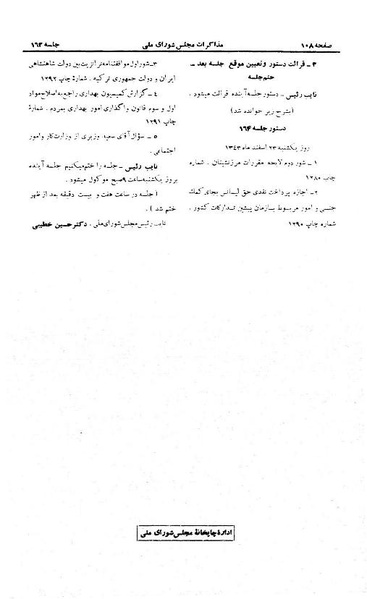 صفحه ۱۰۸
مذاکرات مجلس شورای ملی
جلسه ۱۶۳
۳ - قرائت دستور و تعیین موقع جلسه بعد -
ختم جلسه
نایب رئیس - دستور جلسه آینده قرائت میشود .
(بشرح زیر خوانده شد)
دستور جلسه ۱۶۴
روز یکشنبه ۲۳ اسفند ماه ۱۳۴۳
۱ - شور دوم لایحه مقررات مرزنشینان . شماره
چاپ ۱۲۸۰
۲ - اجازه پرداخت نقدی حق لیسانس بجای کمک
جنسی و امور مربوط بسازمان پیشین تدارکات کشور .
شماره چاپ ۱۲۹۰
۳ - شور اول موافقتنامه ترانزیت بین دولت شاهنشاهی
ایران و دولت جمهوری ترکیه . شماره چاپ ۱۲۹۲
۴ - گزارش کمیسیون بهداری راجع به اصلاح مواد
اول و سوم قانون واگذاری امور بهداری بمردم . شماره
چاپ ۱۲۹۱
۵ - سؤال آقای سعید وزیری از وزارت کار و امور
اجتماعی .
نایب رئیس - جلسه را ختم میکنیم جلسه آینده
بروز یکشنبه ساعت ۹ صبح موکول میشود .
(جلسه در ساعت هفت و بیست دقیقه بعد از ظهر
ختم شد) .
نایب رئیس مجلس شورای ملی . دکتر حسین خطیبی
اداره چاپخانه مجلس شورای ملی